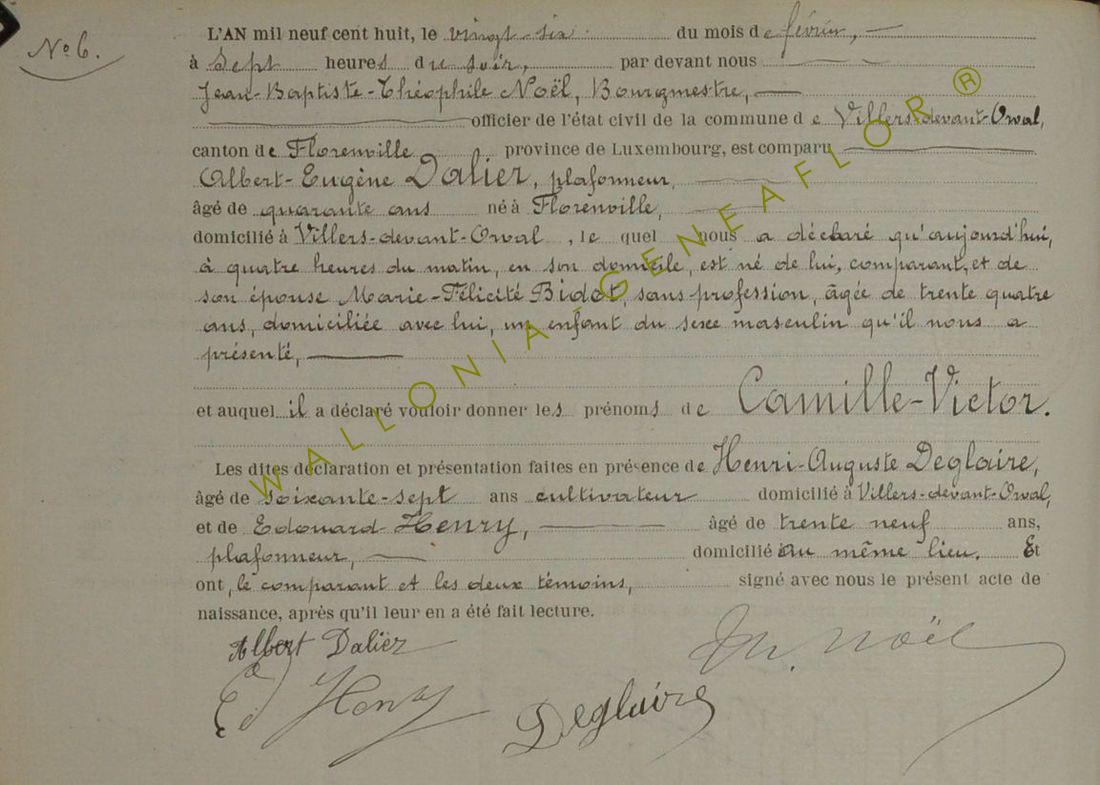 N° 6.
L'AN mil neuf cent huit, le vingt-six du mois de février,
à sept heures du soir, par devant nous
Jean-Baptiste-Théophile Noël, Bourgmestre,
officier de l'état civil de la commune de Villers-devant-Orval,
canton de Florenville province de Luxembourg, est comparu
Albert-Eugène Dalier, plafonneur,
âgé de quarante ans né à Florenville,
domicilié à Villers-devant-Orval, le quel nous a déclaré qu'aujourd'hui,
à quatre heures du matin, en son domicile, est né de lui, comparant, et de
son épouse Marie-Félicité Bidot, sans profession, âgée de trente quatre
ans, domiciliée avec lui, un enfant du sexe masculin qu'il nous a
présenté,
et auquel il a déclaré vouloir donner les prénoms de Camille-Victor.
Les dites déclaration et présentation faites en présence de Henri-Auguste Deglaire,
âgé de soixante-sept ans cultivateur domicilié à Villers-devant-Orval,
et de Edouard Henry, âgé de trente neuf ans,
plafonneur, domicilié au même lieu. Et
ont, le comparant et les deux témoins, signé avec nous le présent acte de
naissance, après qu'il leur en a été fait lecture.
Albert Dalier
Th. Noël
Ed Henry
Deglaire
WALLONIA-GENEAFLOR ®